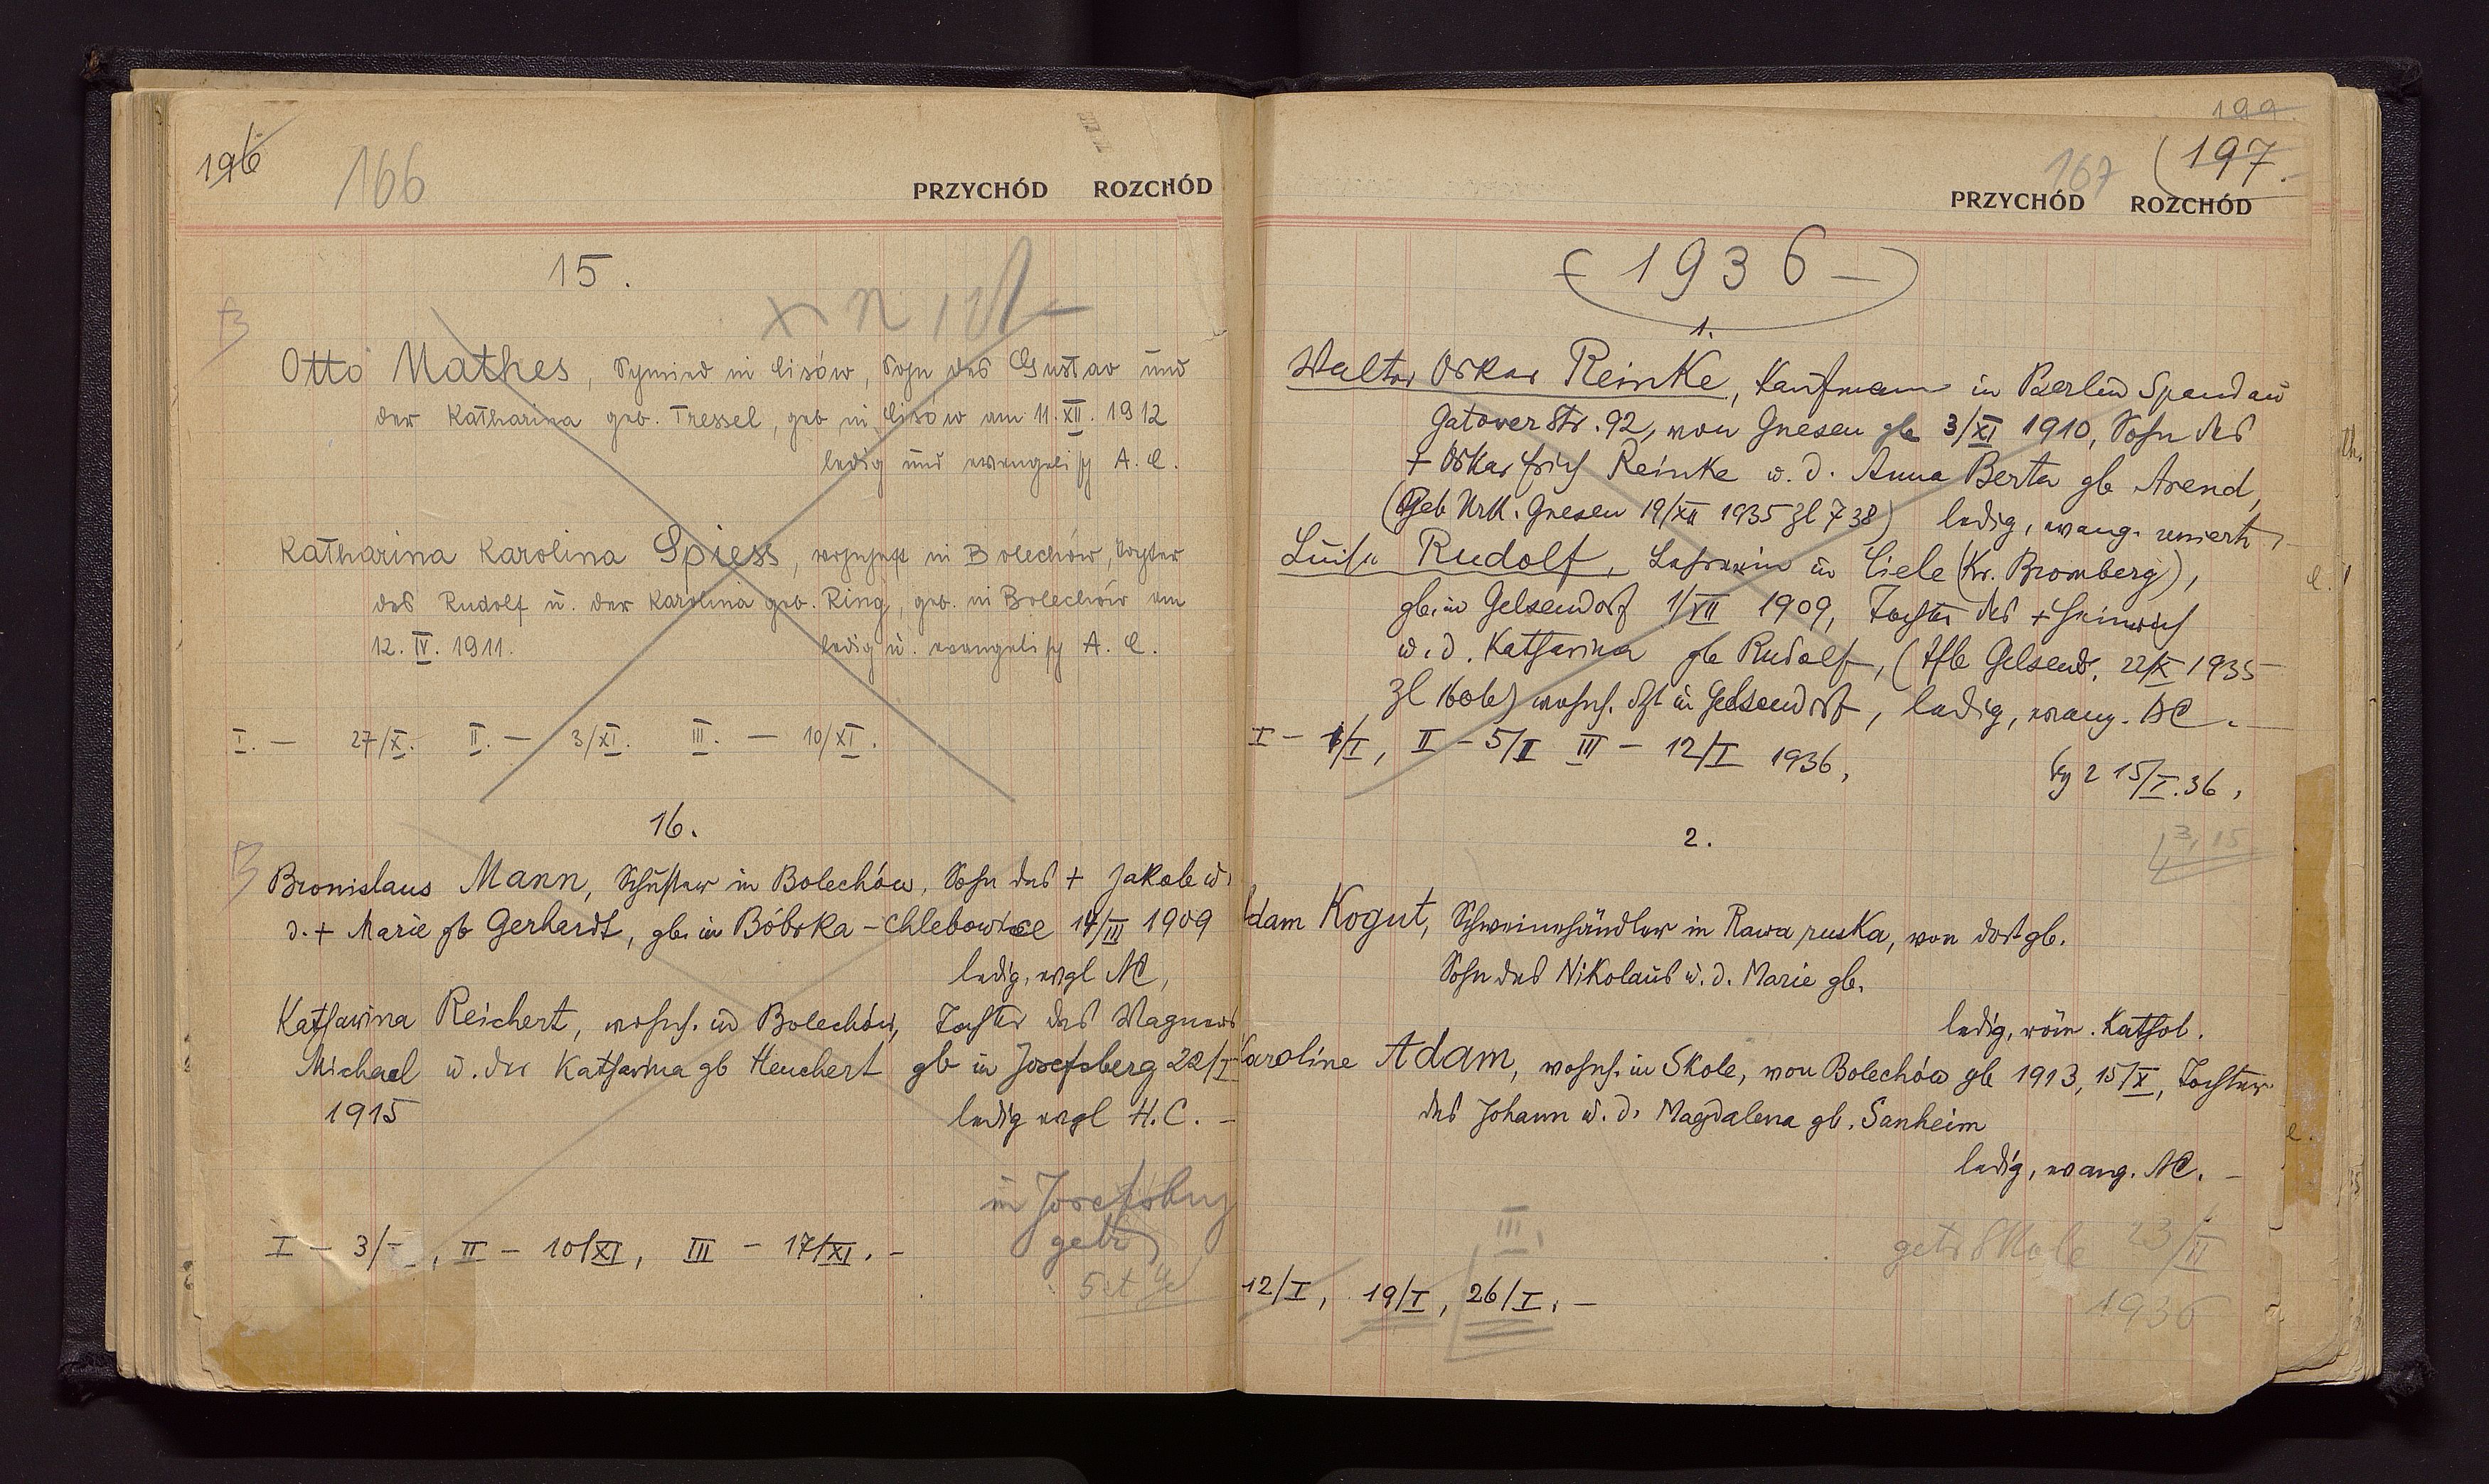 196
166
PRZYCHÓD ROZCHÓD
15.
Otto Mathes, Schmied in Lisów, Sohn des Gustav und
der Katharina geb. Tressel, geb in Lisów am 11. XII. 1912
ledig und evangelisch A. C.
Katharina Karolina Spiess, wohnhaft in Bolechów, Tochter
des Rudolf u. der Karolina geb. Ring, geb. in Bolechów am
12. IV. 1911. ledig u. evangelisch A. C.
I. — 27/X. II. — 3/XI. III. — 10/XI.
16.
Bronislaus Mann, Schuster in Bolechów, Sohn des + Jakob u.
d. + Marie gb Gerhardt, gb. in Bóbrka - Chlebowice 14/III 1909
ledig, evgl AC,
Katharina Reichert, wohnh. in Bolechów, Tochter des Wagners
Michael u. der Katharina gb Heuchert gb in Josefsberg 22/I
1915 ledig evgl H.C. -
in Josefsberg
getr
I - 3/ , II - 10/XI, III - 17/XI. -
199.
167 (197.
PRZYCHÓD ROZCHÓD
- 1936 -
1.
Walter Oskar Reinke, Kaufmann in Berlin Spandau
Gatower Str. 92, von Gnesen gb 3/XI 1910, Sohn des
+ Oskar Erich Reinke u. d. Anna Berta gb Arend,
(Geb Urk. Gnesen 19/XII 1935 Zl 738) ledig, evang. uniert,
Luise Rudolf, Lehrerin in Ciele (Kr. Bromberg),
gb. in Gelsendorf 1/VII 1909, Tochter des + Heinrich
u. d. Katharina gb Rudolf, ( Gelsend. 22/X 1935
Zl ) wohnh. dzt in Gelsendorf, ledig, evang. HC.
I - 1/I, II - 5/I III - 12/I 1936,
15/I.36,
2.
3,15
Adam Kogut, Schweinehändler in Rawa ruska, von dort gb.
Sohn des Nikolaus u. d. Marie gb.
ledig, röm. Kathol.
Caroline Adam, wohnh. in Skole, von Bolechów gb 1913, 15/X, Tochter
des Johann u. d. Magdalena gb. Sanheim
ledig, evang. AC. -
III.
getr Skole 23/II
12/I, 19/I, 26/I. -
1936